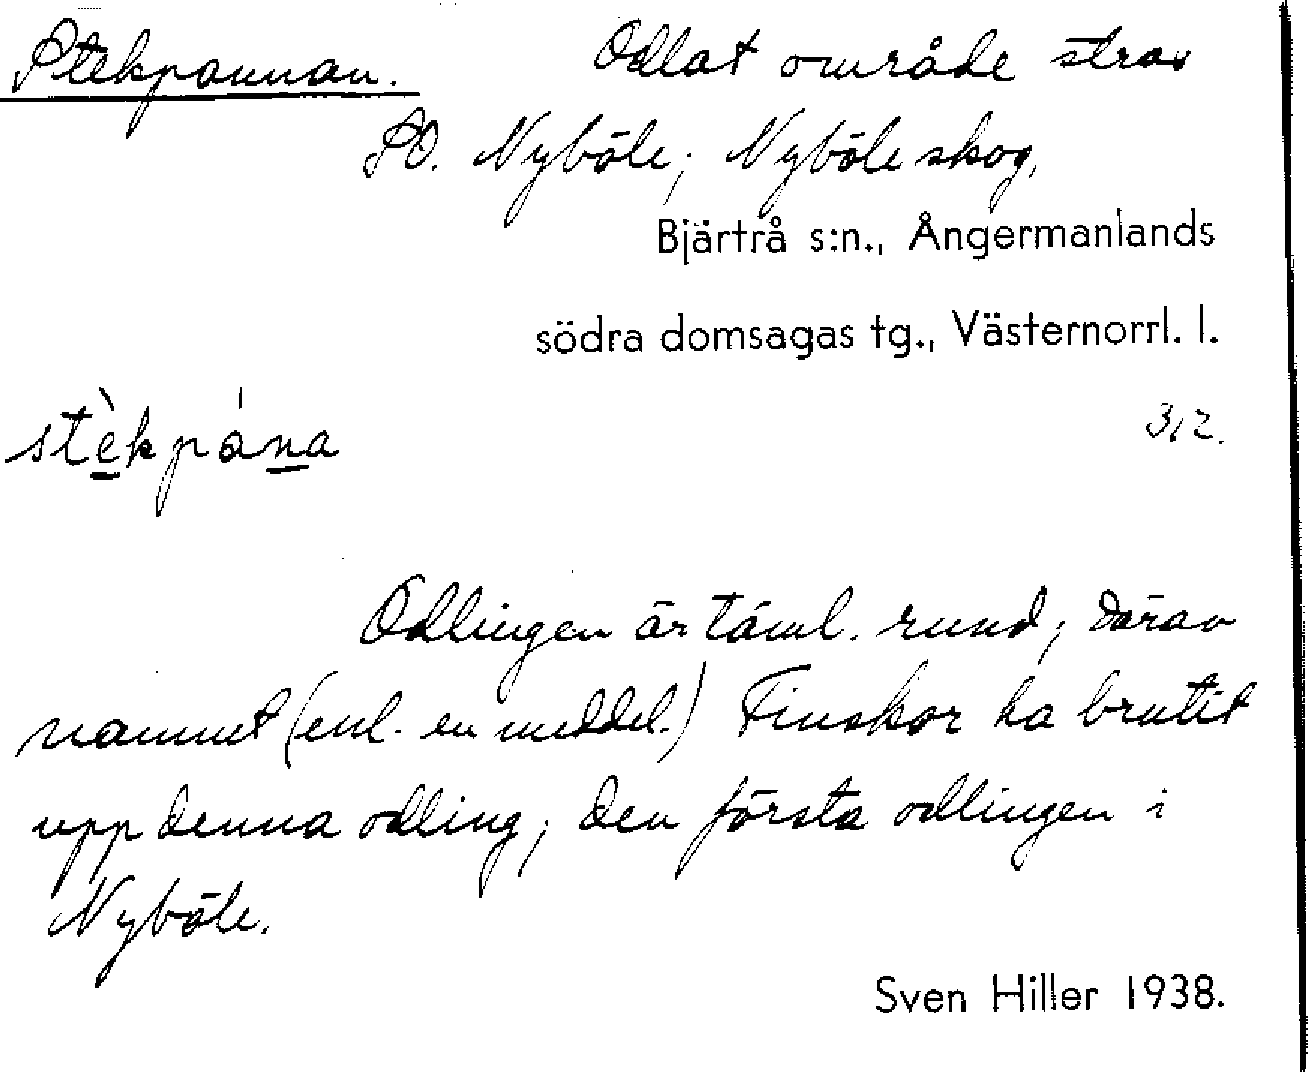 Stekpannan. Odlat område strax
SO. Nyböle; Nyböle skog,
Bjärtrå s:n., Ångermanlands
södra domsagas tg., Västernorrl. l.
stè̲kpán̲a 3,2.
Odlingen är täml. rund; därav
namnet (enl. en meddel.) Finskor ha brutit
upp denna odling; den första odlingen i
Nyböle.
Sven Hiller 1938.